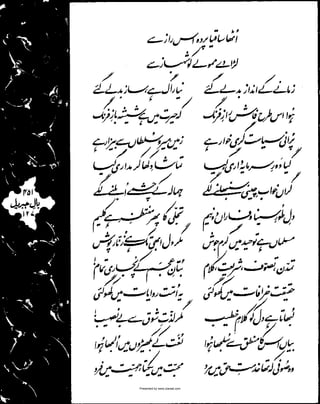 اُٹھا ساقیا پردہ اس راز سے
لڑا دے ممولے کو شہباز سے
زمانے کے انداز بدلے گئے
نیا راگ ہے ساز بدلے گئے
ہُوا اس طرح فاش رازِ فرنگ
کہ حیرت میں ہے شیشہ بازِ فرنگ
پُرانی سیاست گری خوار ہے
زمیں میر و سلطاں سے بیزار ہے
گیا دورِ سرمایہ داری گیا
تماشا دکھا کر مداری گیا
گراں خواب چینی سنبھلنے لگے
ہمالہ کے چشمے اُبلنے لگے
دلِ طُورِ سینا و فاراں دو نیم
تجلّی کا پھر منتظر ہے کلیم
مسلماں ہے توحید میں گرم جوش
مگر دل ابھی تک ہے زُنّار پوش
تمدّن، تصوّف، شریعت، کلام
بُتانِ عجم کے پُجاری تمام!
حقیقت خرافات میں کھو گئی
یہ اُمّت روایات میں کھو گئی
لُبھاتا ہے دل کو کلامِ خطیب
مگر لذّتِ شوق سے بے نصیب!
بیاں اس کا منطق سے سُلجھا ہُوا
لُغت کے بکھیڑوں میں اُلجھا ہُوا
وہ صُوفی کہ تھا خدمتِ حق میں مرد
محبّت میں یکتا حمیّت میں فرد
۴۵۱
بالِ جبریل
۱۲۷
Presented by www.ziaraat.com